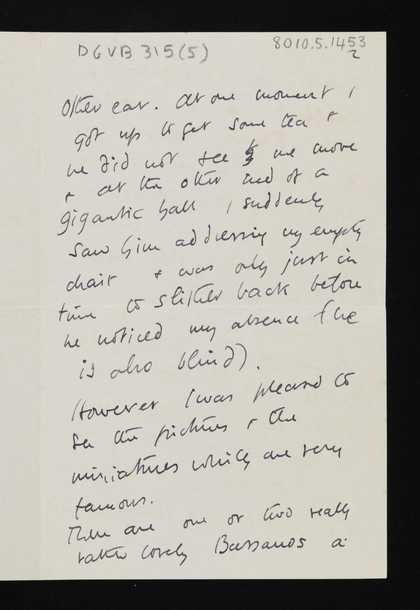 DGVB 315(5)
8010.5.1453
2
Other ear. At one moment I
got up to get some tea &
he did not see me move
& at the other end of a
gigantic hall I suddenly
saw him addressing my empty
chair & was only just in
time to slither back before
he noticed my absence (he
is also blind).
However I was pleased to
see the pictures & the
miniatures which are very
famous.
There are one or two really
rather lovely Bassanos a